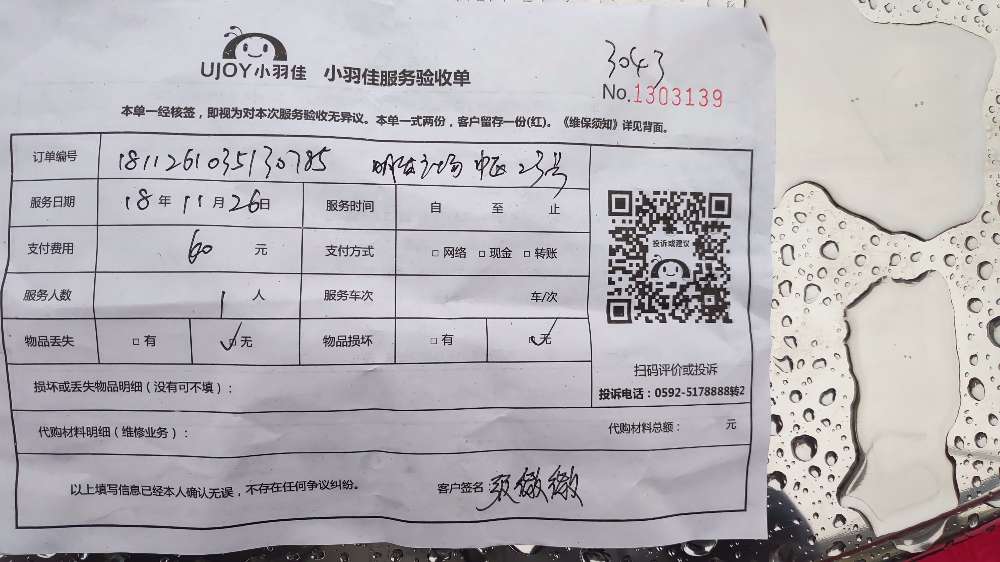 3043
UJOY小羽佳 小羽佳服务验收单
No.1303139
本单一经核签，即视为对本次服务验收无异议。本单一式两份，客户留存一份(红)。《维保须知》详见背面。
订单编号 1811261035130785 明发广场 中区 23号
服务日期 18年11月26日 服务时间 自 至 止
支付费用 60 元 支付方式 □网络 □现金 □转账
服务人数 1 人 服务车次 车/次
物品丢失 □有 ☑无 物品损坏 □有 ☑无
投诉或建议
扫码评价或投诉
投诉电话：0592-5178888转2
损坏或丢失物品明细（没有可不填）：
代购材料明细（维修业务）： 代购材料总额： 元
以上填写信息已经本人确认无误，不存在任何争议纠纷。 客户签名：